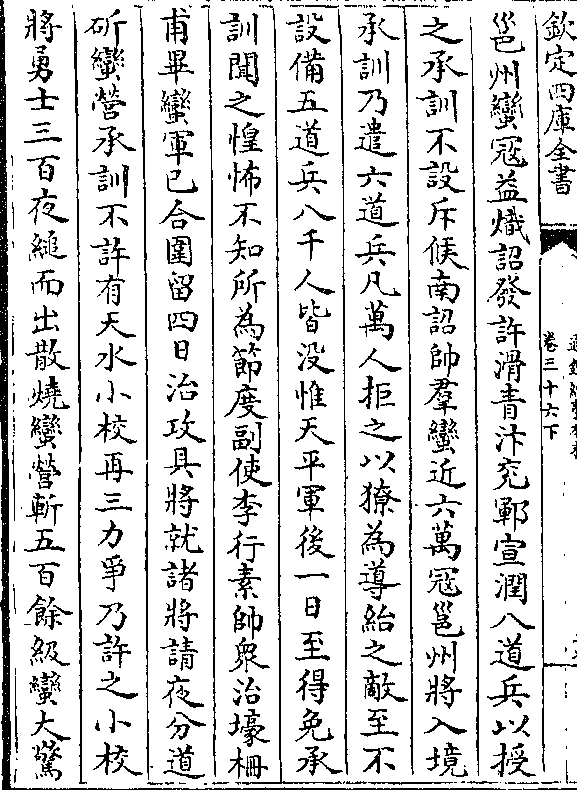 欽定四庫全書
卷三十六下
邕州蠻冦益熾詔發許滑青汴兖鄆宣潤八道兵以授
之承訓不設斥候南詔帥羣蠻近六萬冦邕州將入境
承訓乃遣六道兵凡萬人拒之以獠為導紿之敵至不
設備五道兵八千人皆没惟天平軍後一日至得免承
訓聞之惶怖不知所為節度副使李行素帥衆治壕柵
甫畢蠻軍已合圍留四日治攻具將就諸將請夜分道
斫蠻營承訓不許有天水小校再三力爭乃許之小校
將勇士三百夜縋而出散燒蠻營斬五百餘級蠻大驚